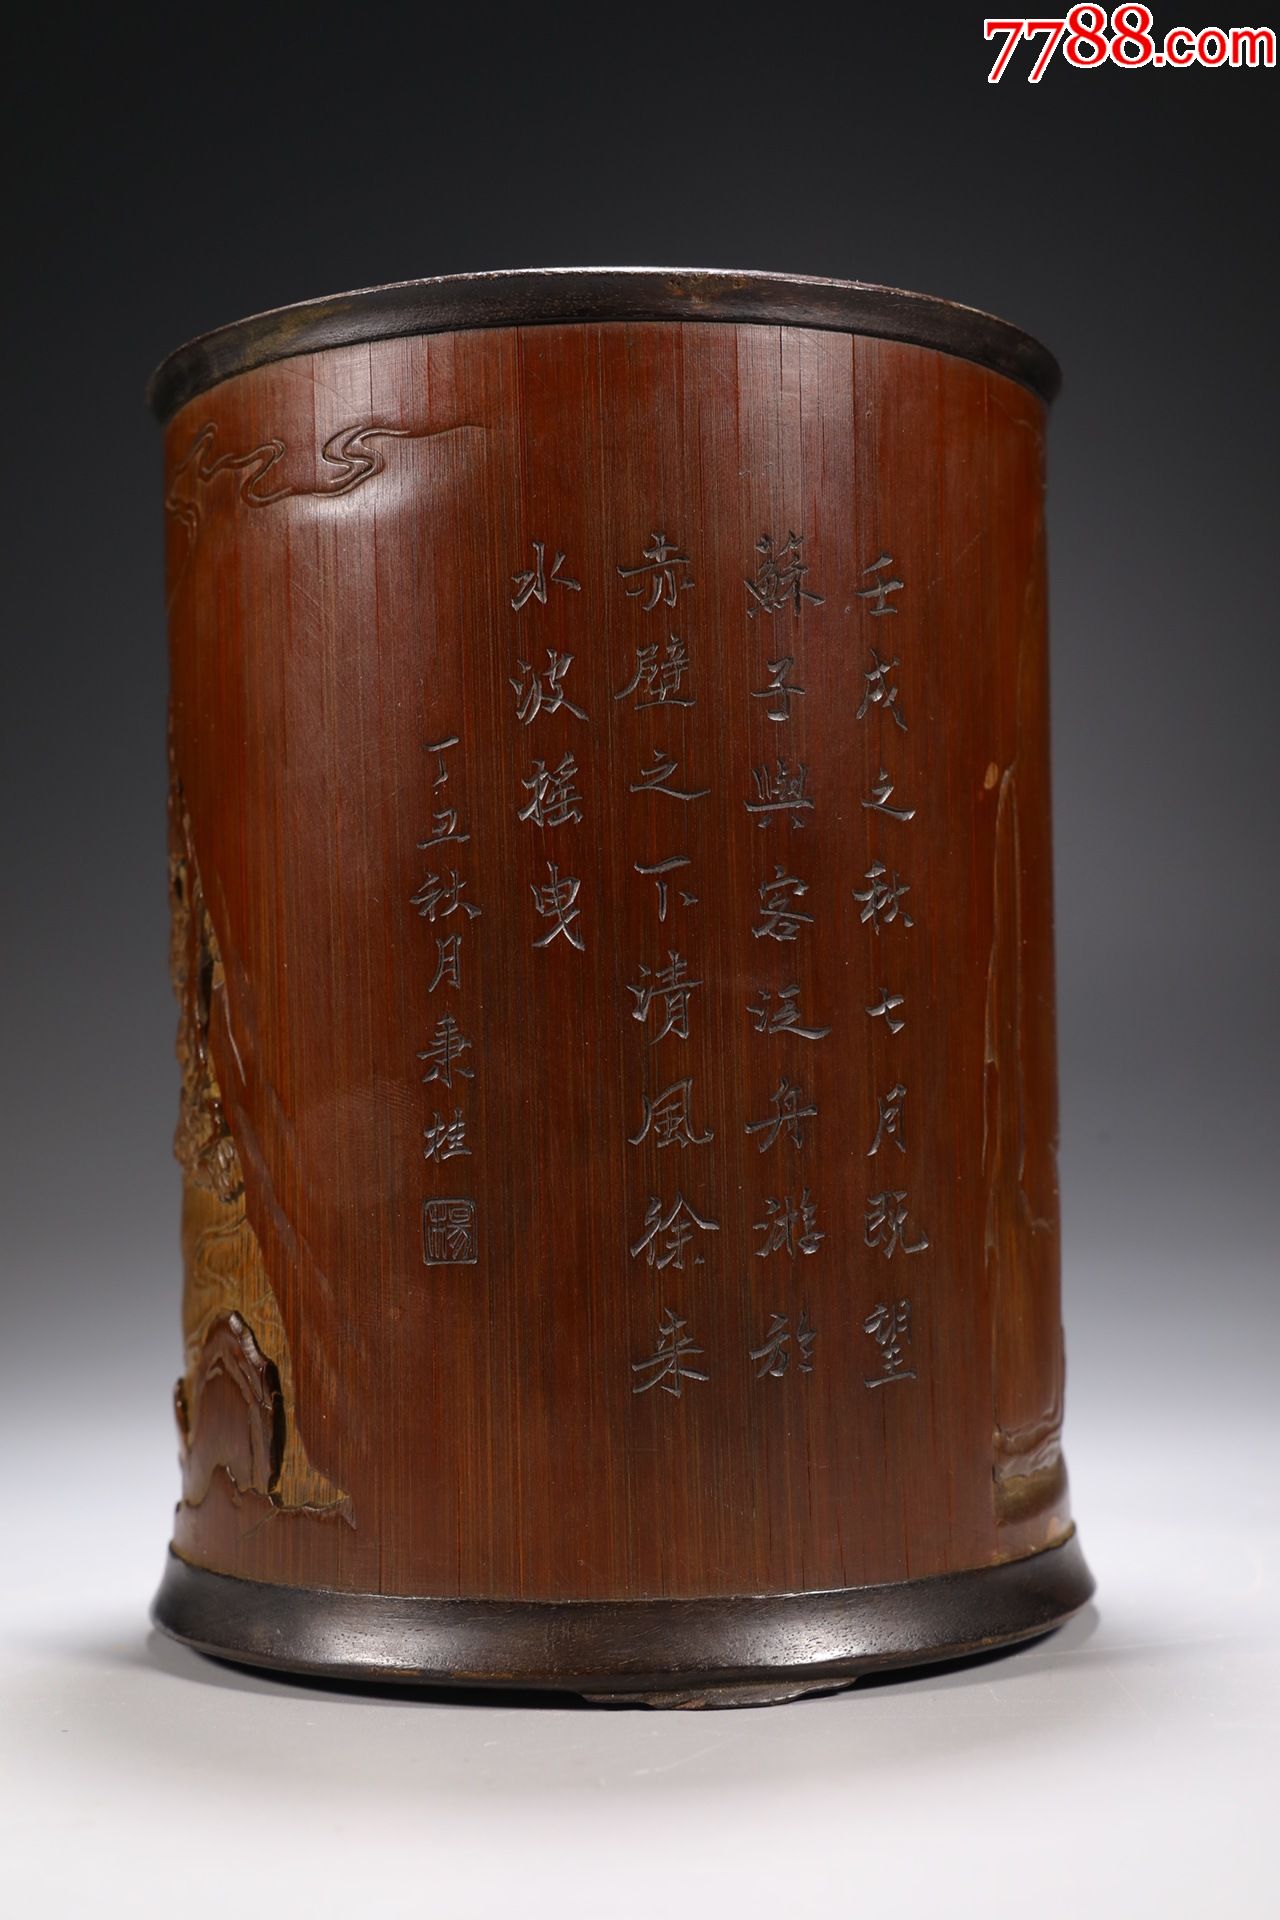 7788.com
壬戌之秋七月既望
蘇子與客泛舟游於
赤壁之下清風徐来
水波摇曳
丁丑秋月秉桂
楊